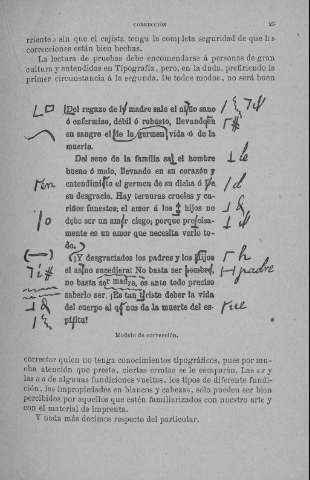 CORRECCIÓN 25
rrientes sin que el cajista tenga la completa seguridad de que las
correcciones están bien hechas.
La lectura de pruebas debe encomendarse á personas de gran
cultura y entendidas en Tipografía, pero, en la duda, prefiriendo la
primer circunstancia á la segunda. De todos modos, no será buen
Del regazo de la madre sale el niño sano
ó enfermizo, débil ó robusto, llevando en
en sangre el de la germen vida ó de la
muerte.
Del seno de la familia sal el hombre
bueno ó malo, llevando en su corazón y
entendimi to el germen de su dicha ó
su desgracia. Hay ternuras crueles y ca-
ridos funestos; el amor á los hijos no
debe ser un amor ciego; porque precisa-
mente es un amor que necesita verlo to-
do.
¡Y desgraciados los padres y los hijos
el as no sucediera! No basta ser
no basta ser madre, es ante todo preciso
saberlo ser. ¡Es tan triste deber la vida
del cuerpo al q nos da la muerte del es-
píritu!
padre
ue
Modelo de corrección.
corrector quien no tenga conocimientos tipográficos, pues por mu-
cha atención que preste, ciertas erratas se le escaparán. Las
de algunas fundiciones vueltas, los tipos de diferente fundi-
ción, las impropiedades en blancos y cabezas, sólo pueden ser bien
percibidos por aquellos que estén familiarizados con nuestro arte y
con el material de imprenta.
Y nada más decimos respecto del particular.